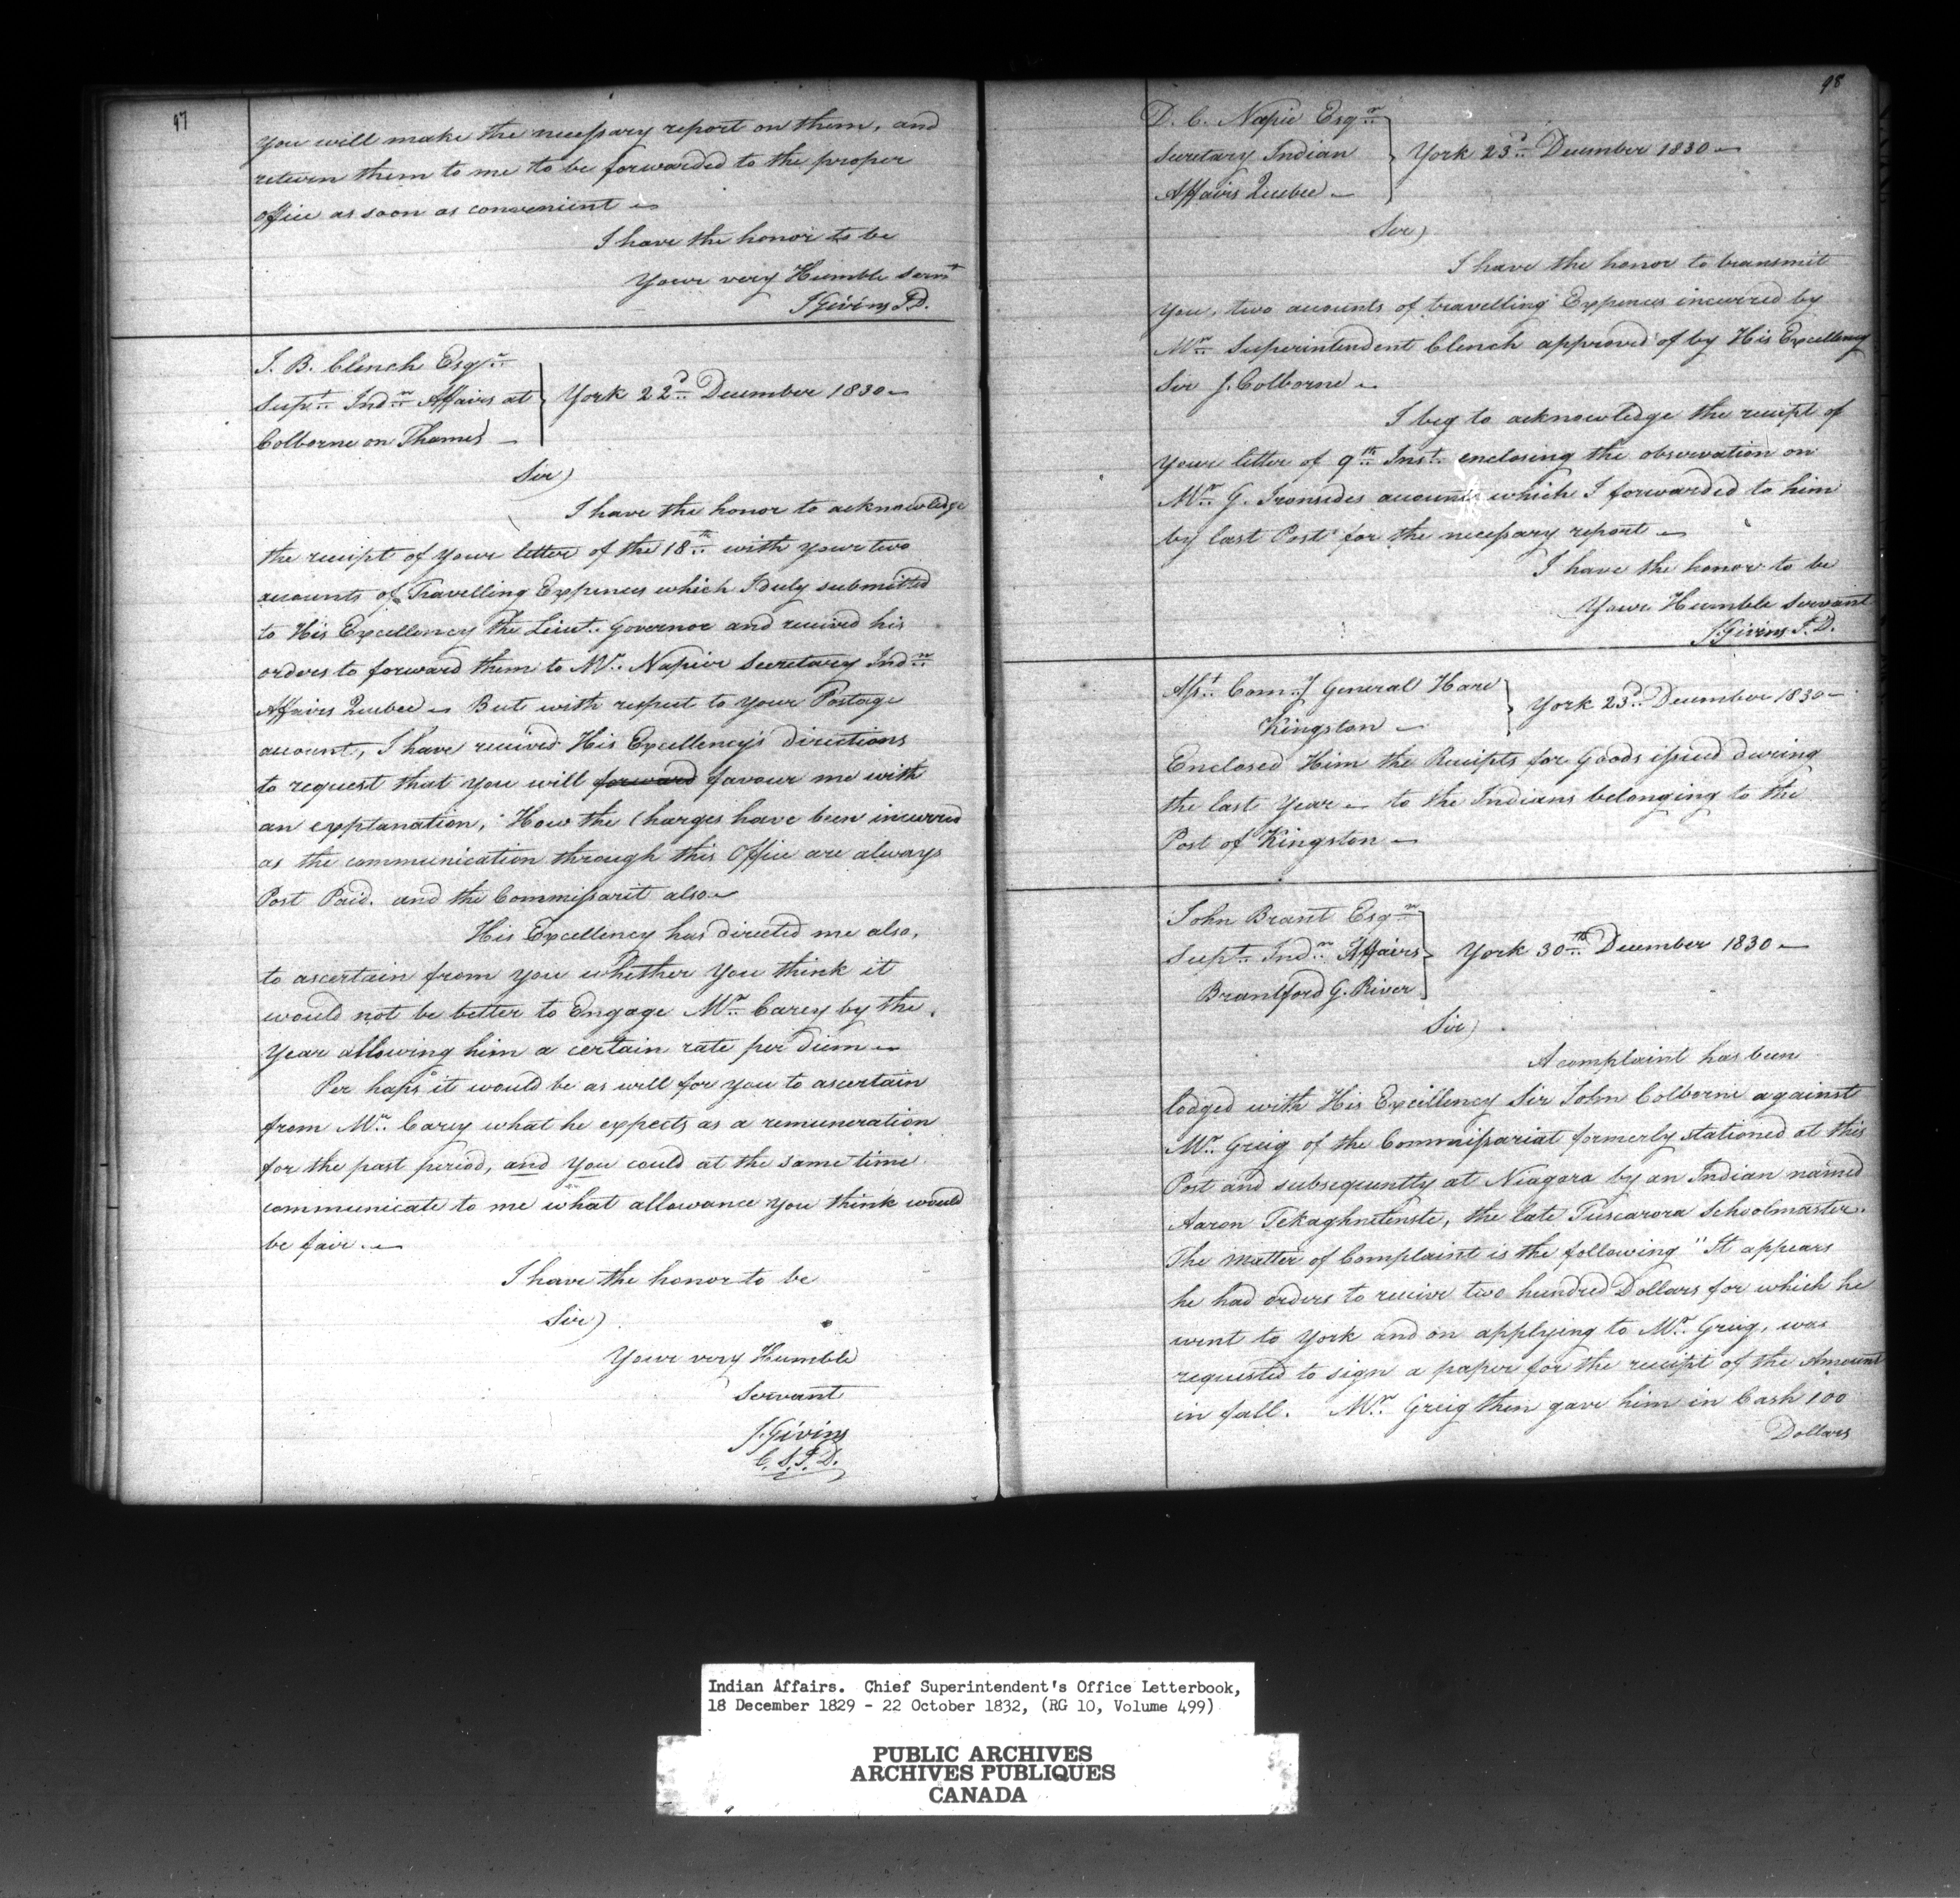 97
you will make the necessary report on them, and
return them to me to be forwarded to the proper
office as soon as convenient –
I have the honor to be
Your very Humble Servt
J Givins I.D.
J. B. Clench Esqr
Supt Indn Affairs at
Colborne on Thames –
York 22d December 1830 –
Sir)
I have the honor to acknowledge
the receipt of your letter of the 18th with your two
accounts of Travelling Expences which I duly submitted
to His Excellency the Lieut. Governor and received his
orders to forward them to Mr. Napier Secretary Indn
Affairs Quebec – But with respect to your Postage
account, I have received His Excellency's directions
to request that you will forward favour me with
an explanation, How the Charges have been incurred
as the communication through this Office are always
Post Paid. and the Commissarit also –
His Excellency has directed me also,
to ascertain from you whether you think it
would not be better to Engage Mr. Carey by the
Year allowing him a certain rate per diem –
Per haps it would be as well for you to ascertain
from Mr. Carey what he expects as a remuneration
for the past period, and you could at the same time
communicate to me what allowance you think would
be fair. –
I have the honor to be
Sir)
Your very Humble
Servant
J. Givins
C. S. I. D.
98
D. C. Napie Esqr
Secretary Indian
Affairs Quebec –
York 23d December 1830 –
Sir)
I have the honor to transmit
you, two accounts of travelling Expences incurred by
Mr. Superintendent Clench approved of by His Excellency
Sir J. Colborne –
I beg to acknowledge the receipt of
your letter of 9th Inst. enclosing the observation on
Mr. G. Ironsides accounts which I forwarded to him
by last Post for the necessary report –
I have the honor to be
Your Humble Servant
J. Givins I. D.
Asst. Comy General Hare
Kingston –
York 23d December 1830 –
Enclosed Him the Receipts for Goods issued during
the last Year – to the Indians belonging to the
Post of Kingston –
John Brant Esqr
Supt Indn Affairs
Brantford G. River
York 30th December 1830 –
Sir)
A complaint has been
lodged with His Excellency Sir John Colborne against
Mr. Greig of the Commissariat formerly stationed at this
Post and subsequently at Niagara by an Indian named
Aaron Tekaghnetenste, the late Tuscarora Schoolmaster.
The matter of Complaint is the following "It appears
he had orders to receive two hundred Dollars for which he
went to York and on applying to Mr. Greig, was
requested to sign a paper for the receipt of the Amount
in full. Mr. Greig then gave him in Cash 100
Dollars
Indian Affairs. Chief Superintendent's Office Letterbook,
18 December 1829 - 22 October 1832, (RG 10, Volume 499)
PUBLIC ARCHIVES
ARCHIVES PUBLIQUES
CANADA